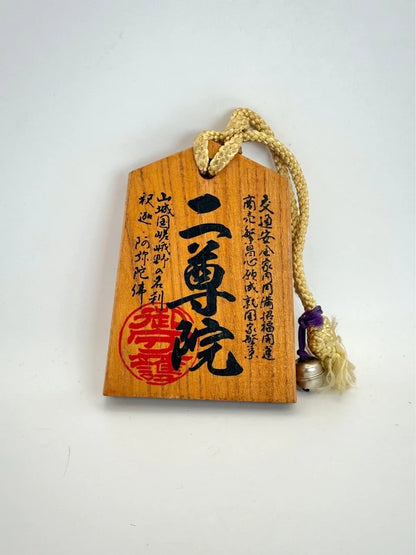 交通安全家内円満招福開運
商売繁昌心願成就国家繁
二尊院
山城国嵯峨野の名刹
釈迦 阿弥陀佛